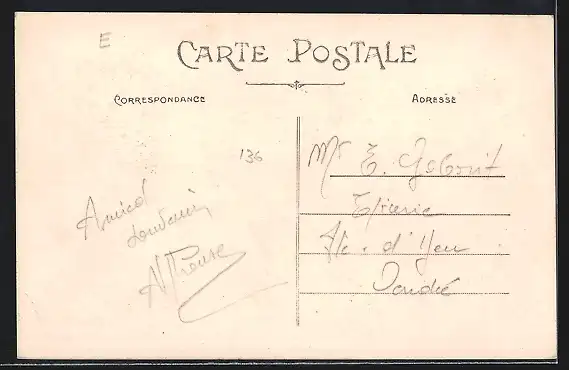 E
CARTE POSTALE
CORRESPONDANCE
ADRESSE
136
Mr E.
Epicerie
Ile. d'Yeu
Vendée
Amical
souvenir